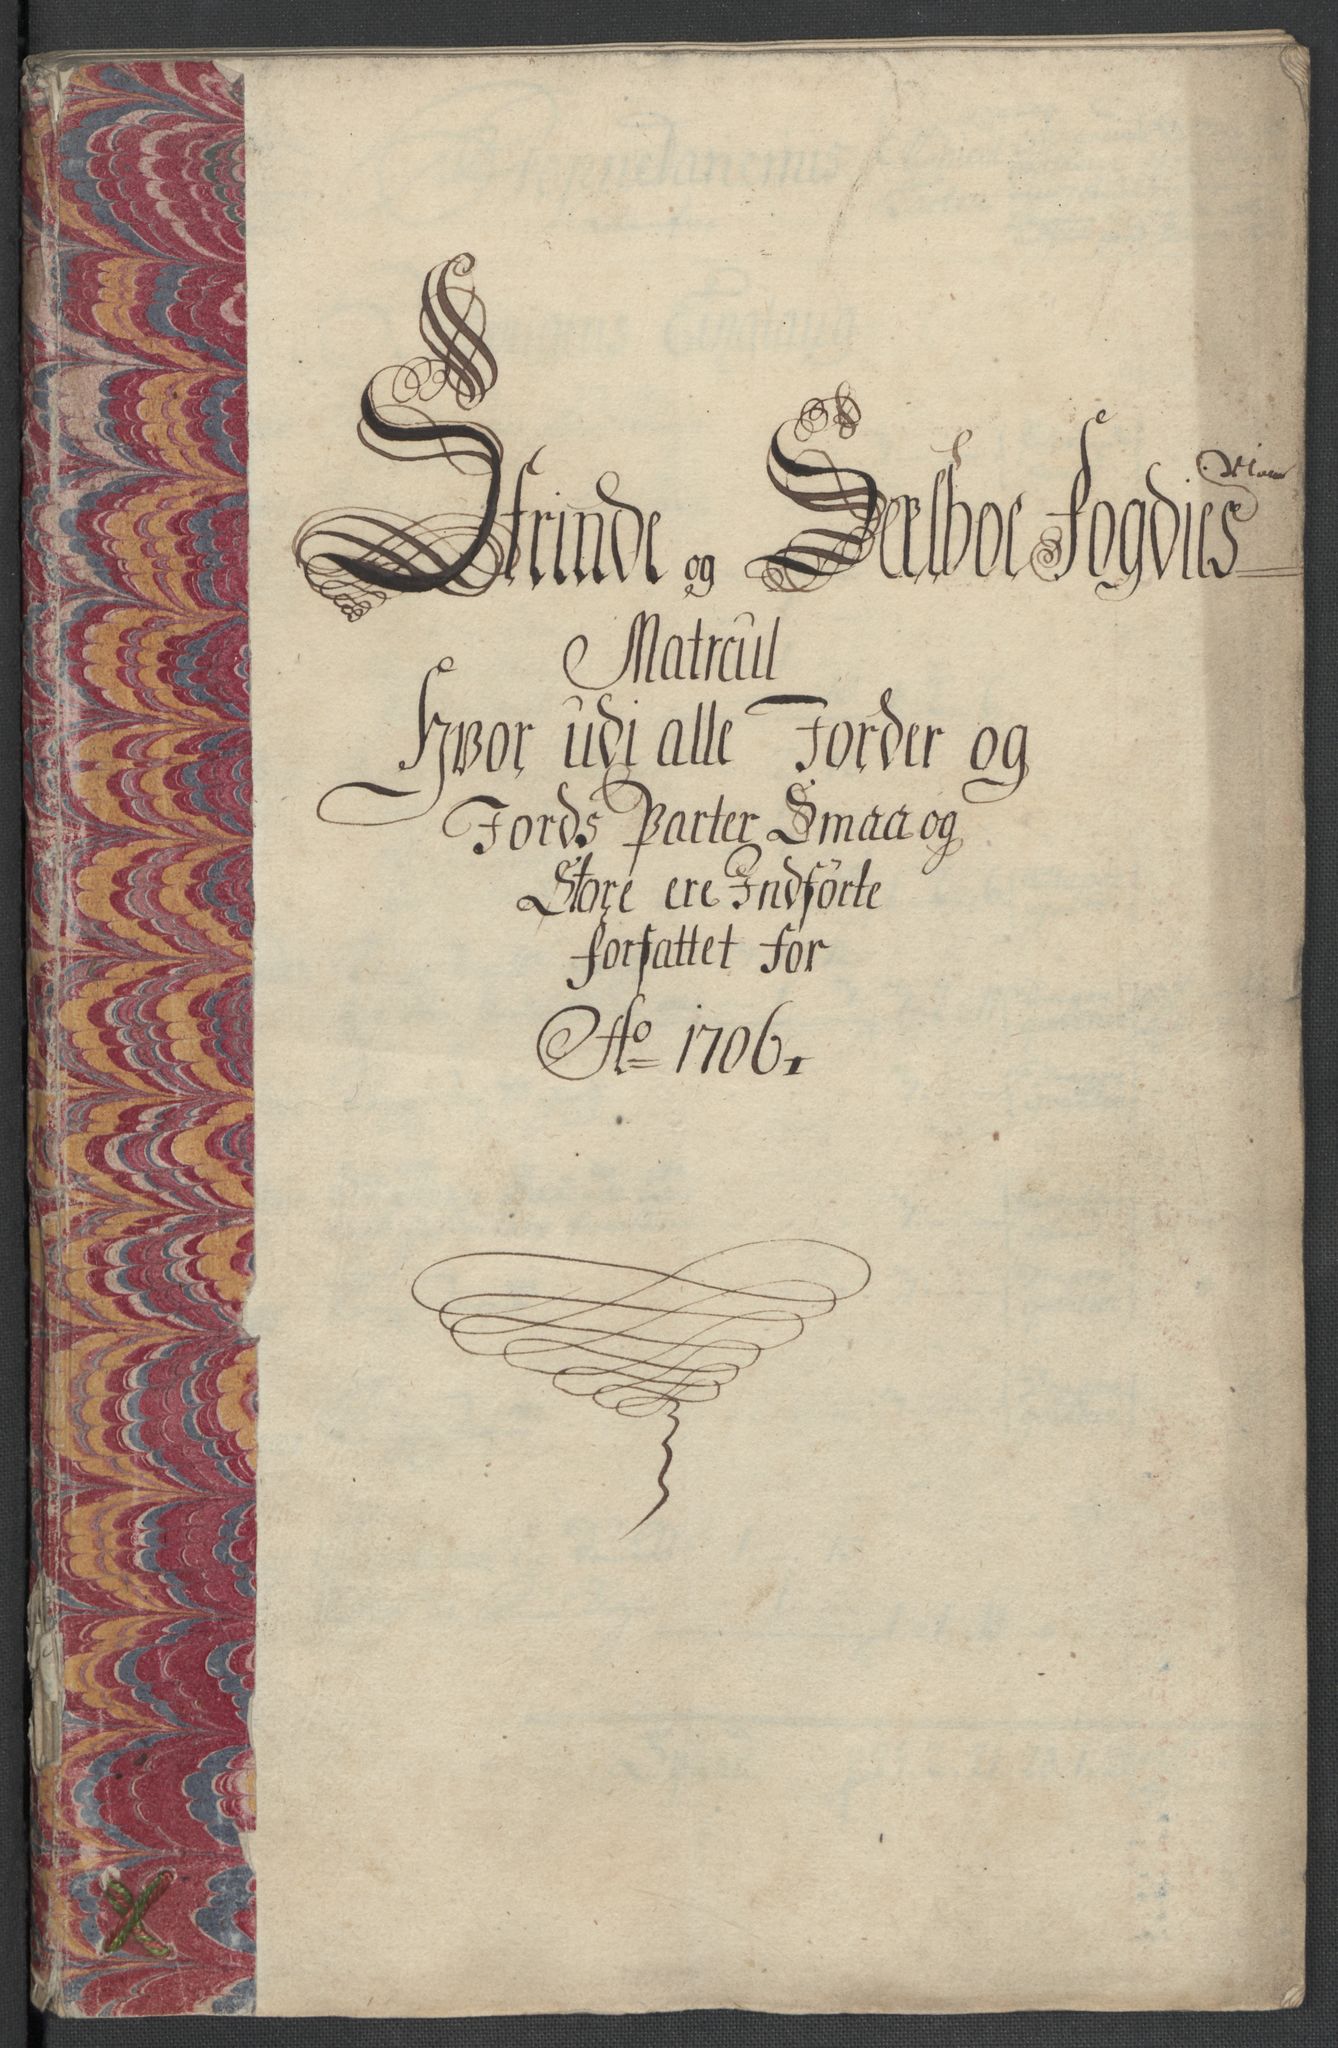 Strinde og Seelboe fogdies
Matrcul
Hvor udi alle Jorder og
Jords Parter Smaa og
Store ere Indförte
forfattet for
Ao 1706.